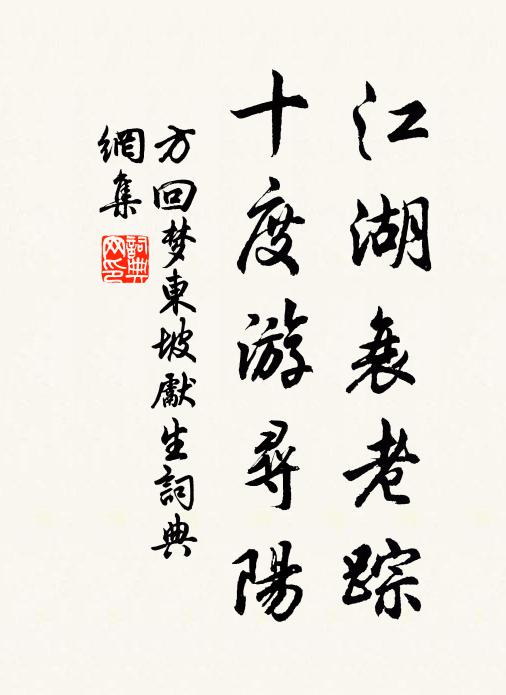 江湖衰老踪
十度游尋陽
方回梦東坡獻生詞典
網集
詞典网印